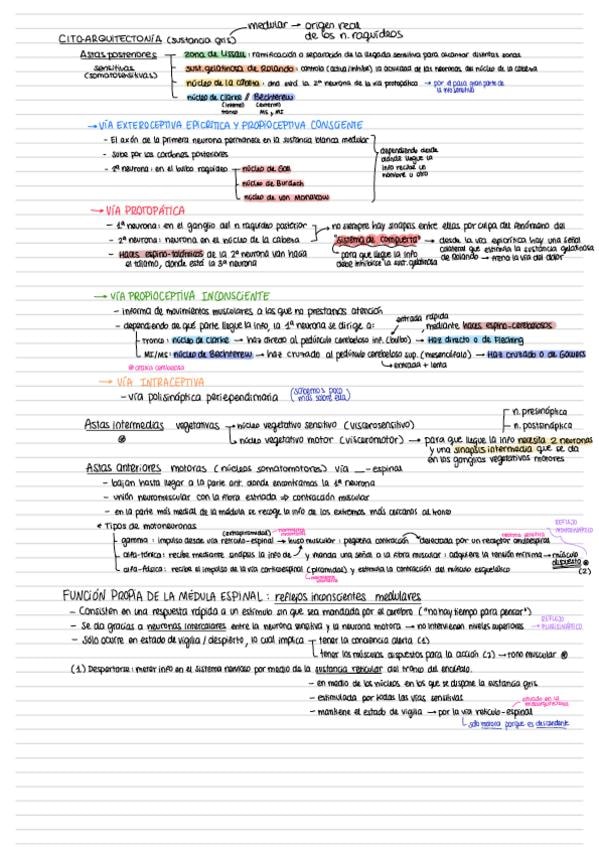 medular → origen real
de los n. raquídeos
CITOARQUITECTONÍA (sustancia gris)
Astas posteriores — zona de Lissau: ramificación o separación de la llegada sensitiva para alcanzar distintas zonas
sensitivas
(somatosensitivas)
sust. gelatinosa de Rolando: controla (activa/inhibe) la actividad de las neuronas del núcleo de la cabeza
núcleo de la cabeza: ahí está la 2ª neurona de la vía protopática → por él pasa gran parte de la info sensitiva
núcleo de Clarke // Bechterew
(interno) (externo)
tronco MS y MI
→ VÍA EXTEROCEPTIVA EPICRÍTICA Y PROPIOCEPTIVA CONSCIENTE
- El axón de la primera neurona permanece en la sustancia blanca medular
- Sube por los cordones posteriores
- 2ª neurona: en el bulbo raquídeo — núcleo de Goll
núcleo de Burdach
núcleo de von Monakow
dependiendo desde
dónde llegue la
info recibe un
nombre u otro
→ VÍA PROTOPÁTICA
- 1ª neurona: en el ganglio del n. raquídeo posterior
- 2ª neurona: neurona en el núcleo de la cabeza
- Haces espino-talámicos de la 2ª neurona van hacia
el tálamo, donde está la 3ª neurona
no siempre hay sinapsis entre ellas por culpa del fenómeno del
"sistema de compuerta" → desde la vía epicrítica hay una señal
colateral que estimula la sustancia gelatinosa
de Rolando → frena la vía del dolor
para que llegue la info
debe inhibirse la sust. gelatinosa
→ VÍA PROPIOCEPTIVA INCONSCIENTE
- informa de movimientos musculares a los que no prestamos atención
- dependiendo de qué parte llegue la info, la 1ª neurona se dirige a:
entrada rápida
, mediante haces espino-cerebelosos
Tronco: núcleo de Clarke → haz directo al pedúnculo cerebeloso inf. (bulbo) → Haz directo o de Flechsig
MI/MS: núcleo de Bechterew → haz cruzado al pedúnculo cerebeloso sup. (mesencéfalo) → Haz cruzado o de Gowers
entrada + lenta
→ VÍA INTRACEPTIVA
- vía polisináptica periependimaria (sabemos poco
más sobre ella)
Astas intermedias vegetativas → núcleo vegetativo sensitivo (viscerosensitivo)
núcleo vegetativo motor (visceromotor) → para que llegue la info necesita 2 neuronas
y una sinapsis intermedia que se da
en los ganglios vegetativos motores
n. presináptica
n. postsináptica
Astas anteriores motoras (núcleos somatomotores) vía __-espinal
- bajan hasta llegar a la parte ant. donde encontramos la 1ª neurona
- unión neuromuscular con la fibra estriada ⇒ contracción muscular
- en la parte más medial de la médula se recoge la info de los extremos más cercanos al tronco
* Tipos de motoneuronas
(extrapiramidal)
gamma: impulso desde vía retículo-espinal → huso muscular: pequeña contracción detectada por un receptor anuloespiral
alfa-tónica: recibe mediante sinapsis la info de y manda una señal a la fibra muscular: adquiere la tensión mínima → músculo
dispuesto
(2)
alfa-fásica: recibe el impulso de la vía corticoespinal (piramidal) y estimula la contracción del músculo esquelético
REFLEJO
MONOSINÁPTICO
FUNCIÓN PROPIA DE LA MÉDULA ESPINAL: reflejos inconscientes medulares
- Consisten en una respuesta rápida a un estímulo sin que sea mandada por el cerebro ("no hay tiempo para pensar")
- Se da gracias a neuronas intercalares entre la neurona sensitiva y la neurona motora → no intervienen niveles superiores → REFLEJO
PLURISINÁPTICO
- Sólo ocurre en estado de vigilia / despierto, lo cual implica — tener la conciencia alerta (1)
tener los músculos dispuestos para la acción (2) → tono muscular
(1) Despertarse: meter info en el sistema nervioso por medio de la sustancia reticular del tronco del encéfalo.
- en medio de los núcleos en los que se dispone la sustancia gris
- estimulada por todas las vías sensitivas
- mantiene el estado de vigilia → por la vía retículo-espinal
sólo motora porque es descendente